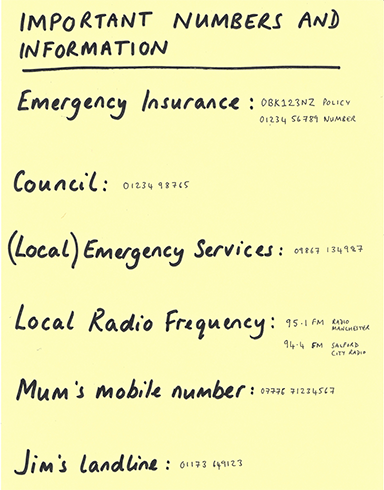 IMPORTANT NUMBERS AND
INFORMATION
Emergency Insurance: OBK123NZ POLICY
01234 56789 NUMBER
Council: 01234 98765
(Local) Emergency Services: 09867 134987
Local Radio Frequency: 95.1 FM RADIO MANCHESTER
94.4 FM SALFORD CITY RADIO
Mum's mobile number: 07776 71234567
Jim's landline: 01173 649123